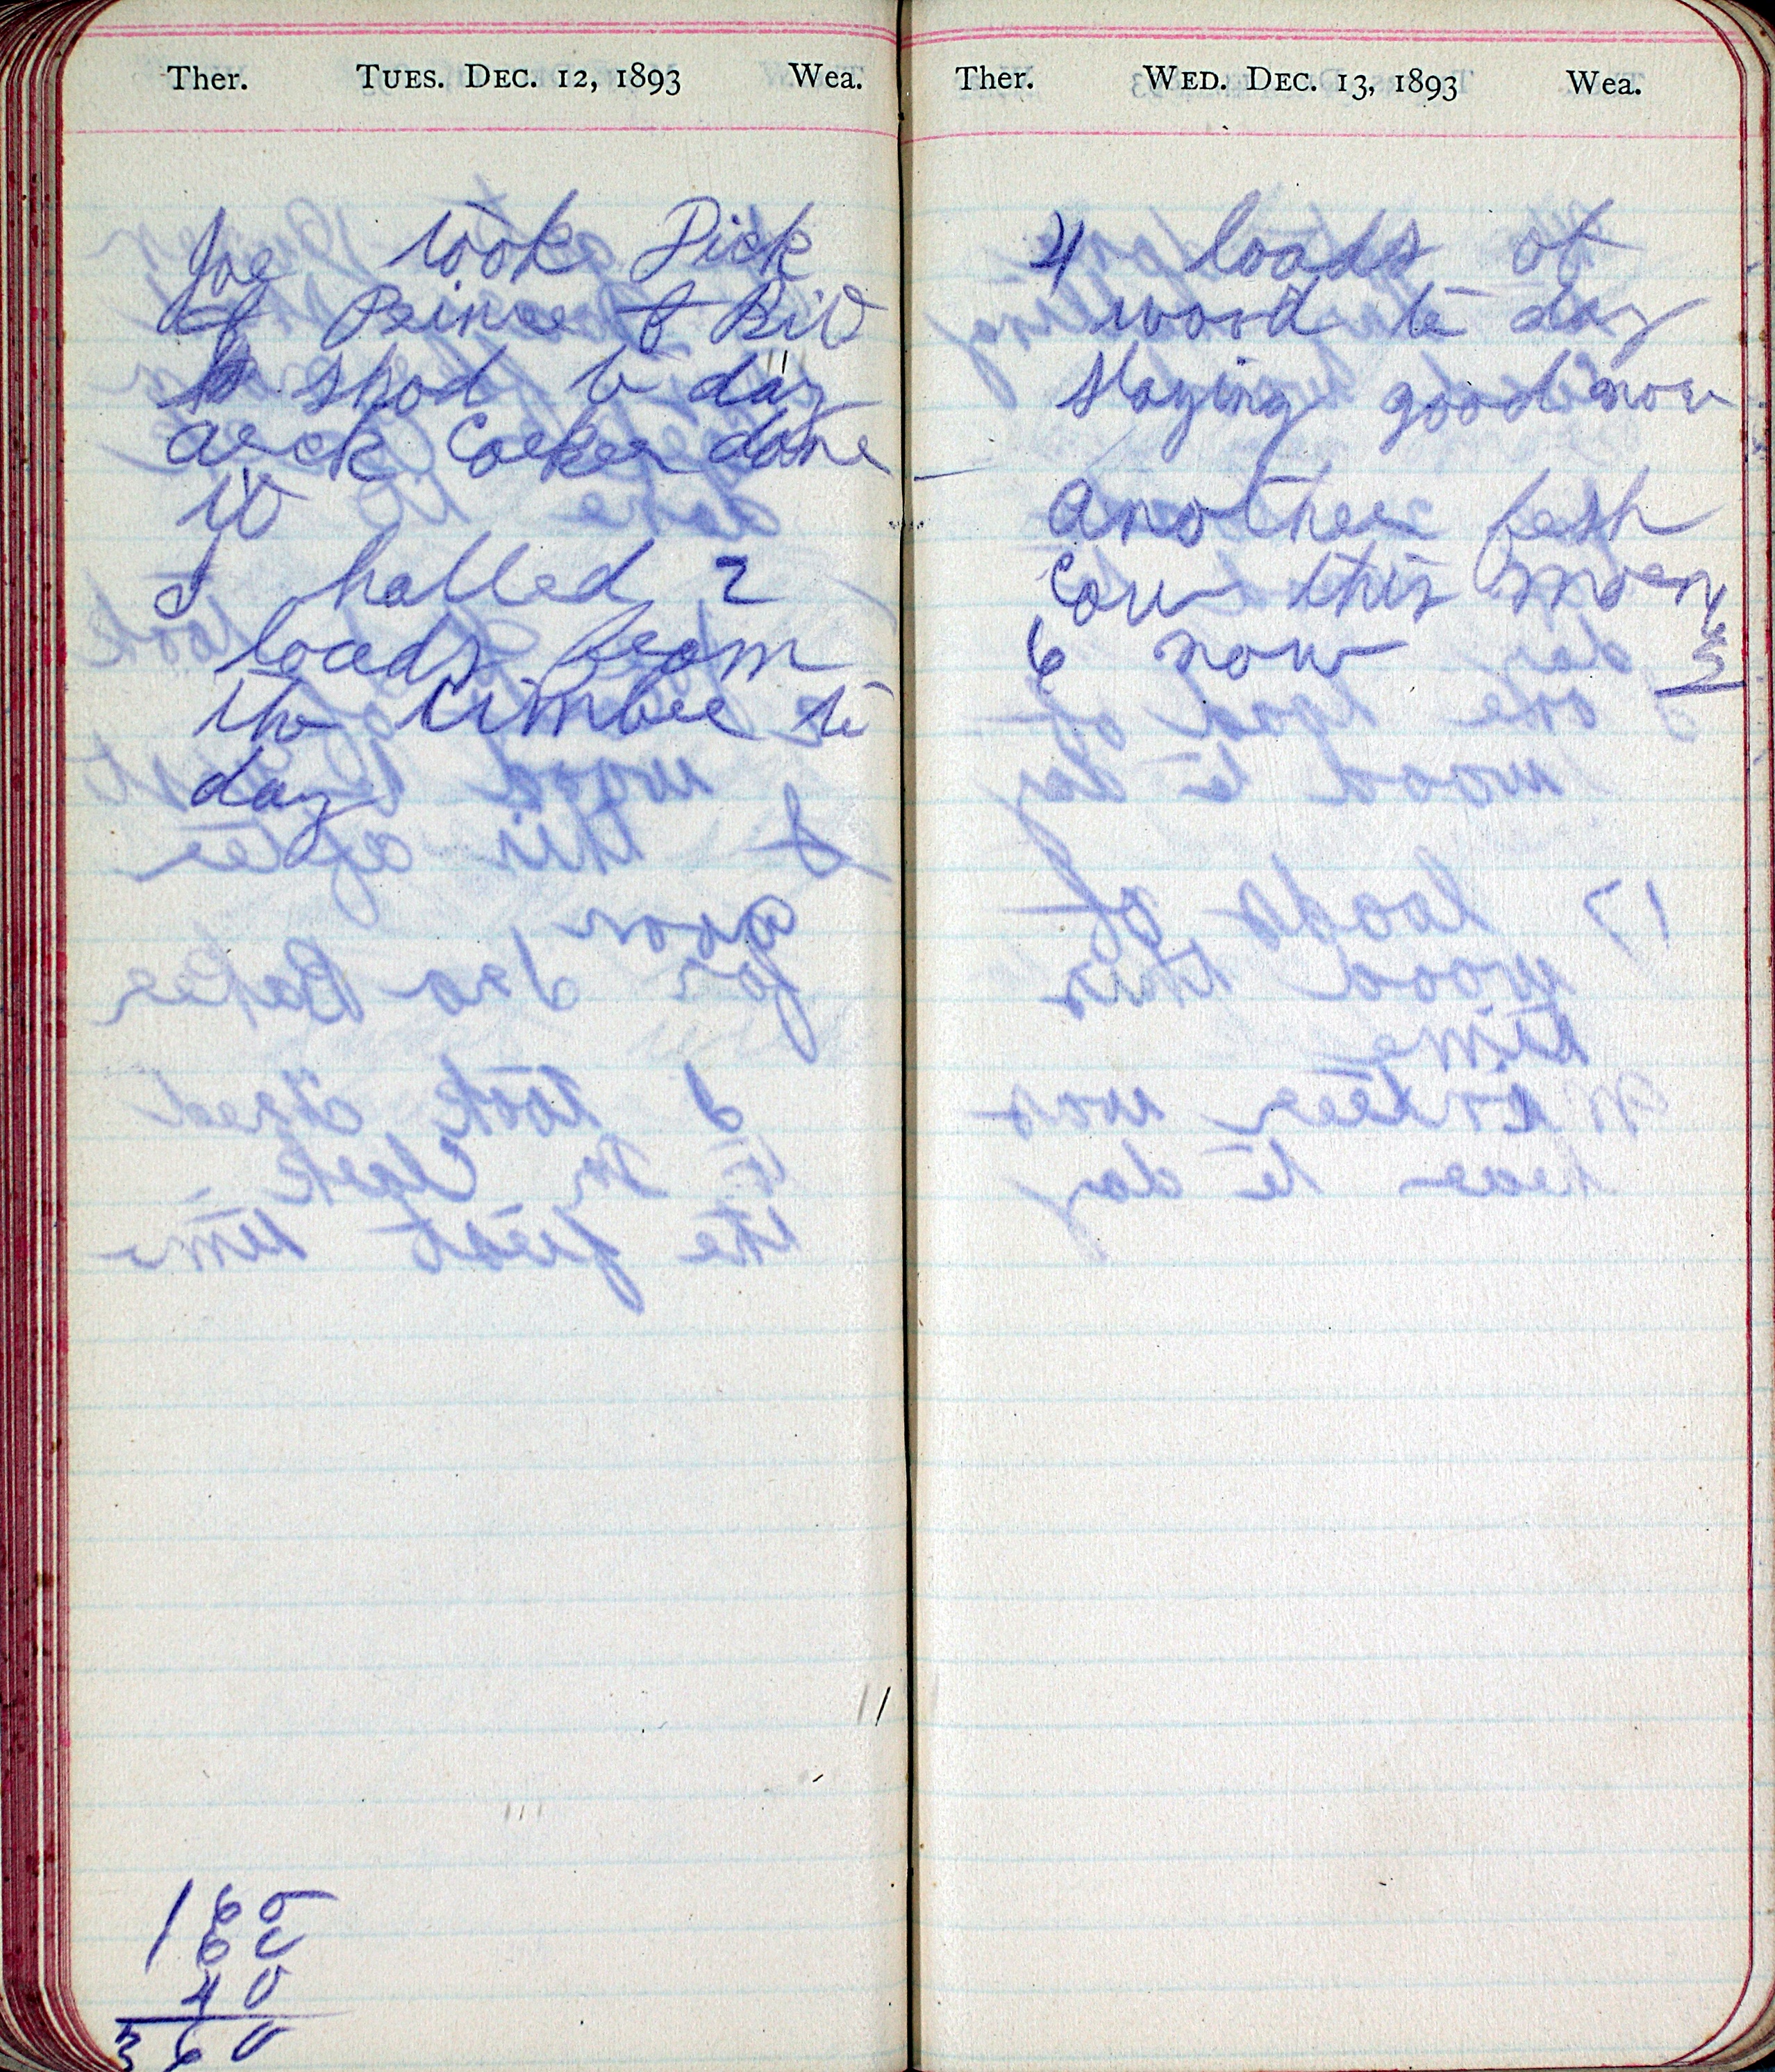 Ther. TUES. DEC. 12, 1893 Wea.
Joe took Dick
& Prince & Bill
shod to day
arck Corker done
it
I halled 2
loads from
the timber to
day
160
160
40
360
Ther. WED. DEC. 13, 1893 Wea.
4 loads of
wood to day
Slaying good now
another fesh
Cow this morn
6 now